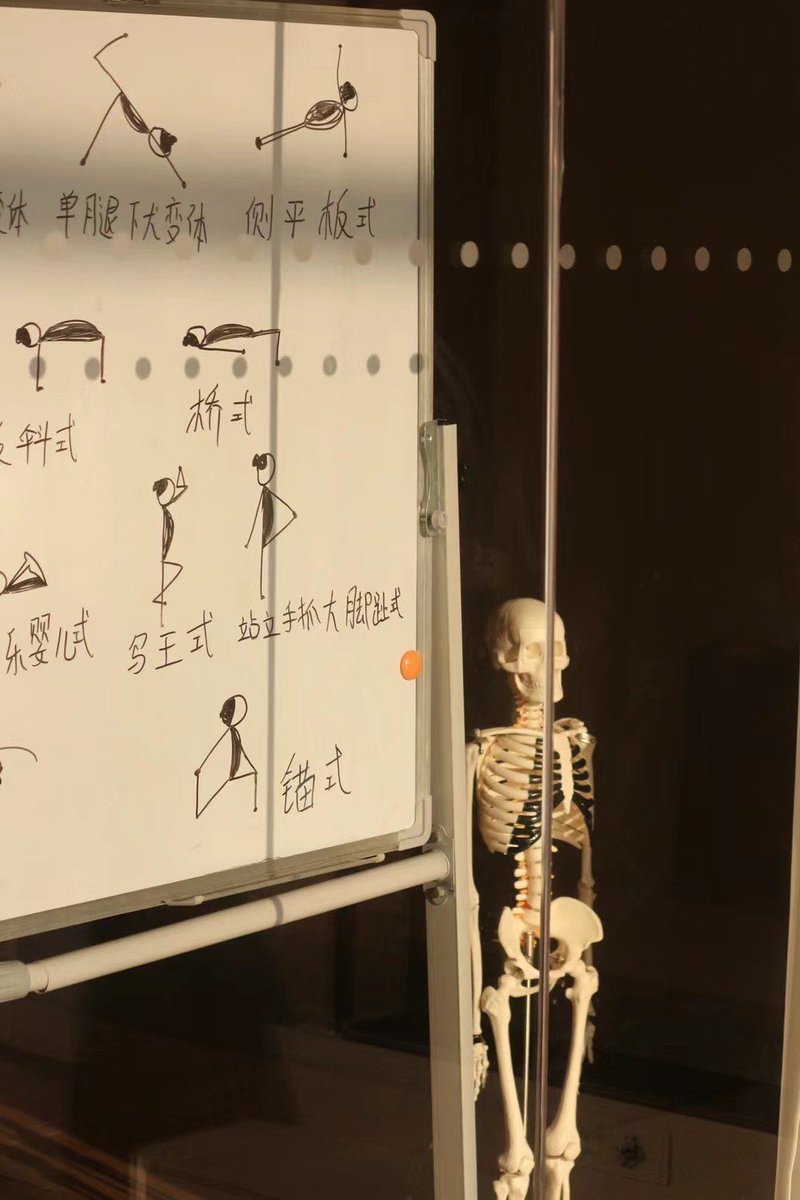 体 单腿下犬变体 侧平板式
桥式
斜式
乐婴儿式 鸟王式 站立手抓大脚趾式
锚式